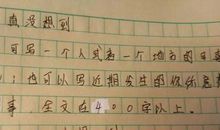 真没想到
可写一个人或者一个地方的
；也可以写近期发生的你
事 全文在400字以上。